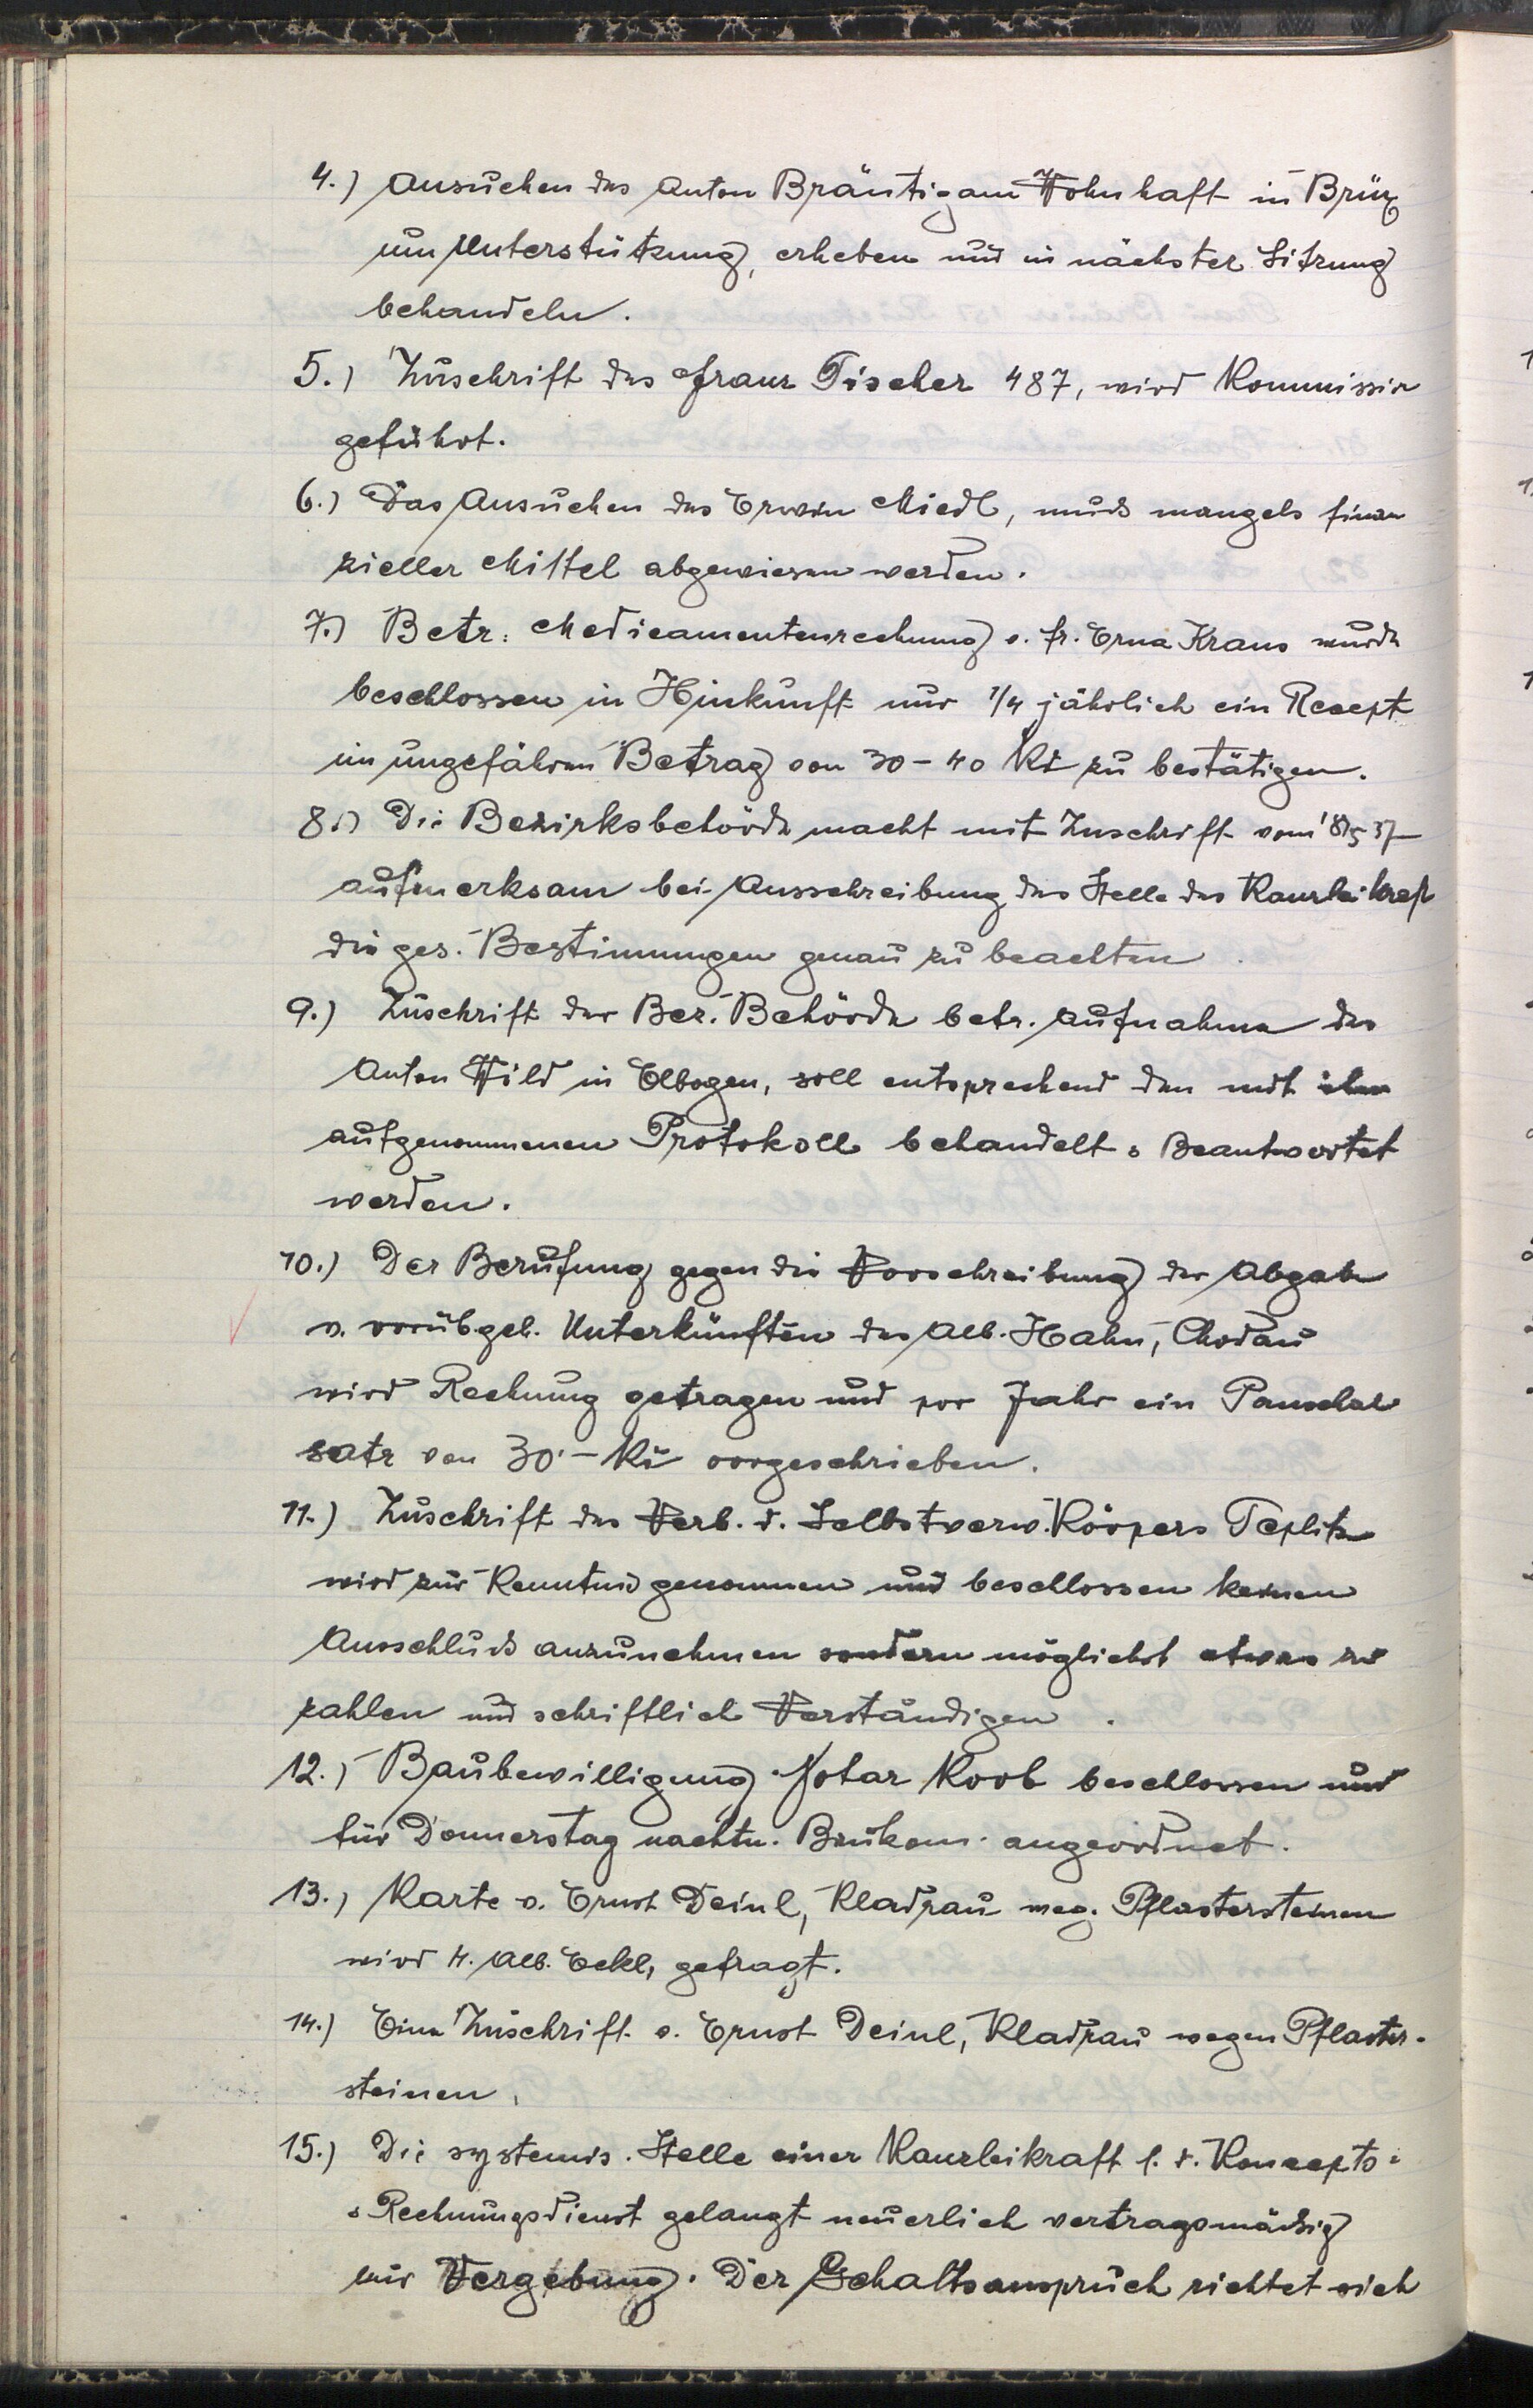 4.) Ansuchen des Anton Bräutigam Wohnhaft in Brüx
um Unterstützung, erheben und in nächster Sitzung
behandeln.
5.) Zuschrift des Franz Tischer 487, wird Kommission
geführt.
6.) Das Ansuchen des Erwin Miedl, muß mangels finan
zieller Mittel abgewiesen werden.
7.) Betr: Medicamentenrechnung v. Fr. Erna Kraus wurde
beschlossen in Hinkunft nur 1/4 jährlich ein Recept
im ungefähren Betrag von 30-40 Kč zu bestätigen.
8.) Die Bezirksbehörde macht mit Zuschrift vom 18/5 37
aufmerksam bei Ausschreibung der Stelle der Kanzleikraft
die ges. Bestimmungen genau zu beachten.
9.) Zuschrift der Bez. Behörde betr. Aufnahme des
Anton Wild in Elbogen, soll entsprechend den mit ihm
aufgenommenen Protokoll behandelt & Beantwortet
werden.
10.) Der Berufung gegen die Vorschreibung der Abgabe
v. vorübgeh. Unterkünften des Alb. Hahn, Chodau
wird Rechnung getragen und pro Jahr ein Pauschal
satz von 30·- Kč vorgeschrieben.
11.) Zuschrift des Verb. d. Selbstverw. Körpers Teplitz
wird zur Kenntnis genommen und beschlossen keinen
Ausschluß anzunehmen sondern möglichst etwas zu
zahlen und schriftlich Verständigen.
12.) Baubewilligung Notar Koob beschlossen und
für Donnerstag nachm. Baukom. angeordnet.
13.) Karte v. Ernst Deinl, Kladrau weg. Pflastersteinen
wird H. Alb. Eckl, gefragt.
14.) Eine Zuschrift v. Ernst Deinl, Kladrau wegen Pflaster-
steinen.
15.) Die systemis. Stelle einer Kanzleikraft f. d. Koncepts-
& Rechnungsdienst gelangt neuerlich vertragsmäßig
zur Vergebung. Der Gehaltsanspruch richtet sich